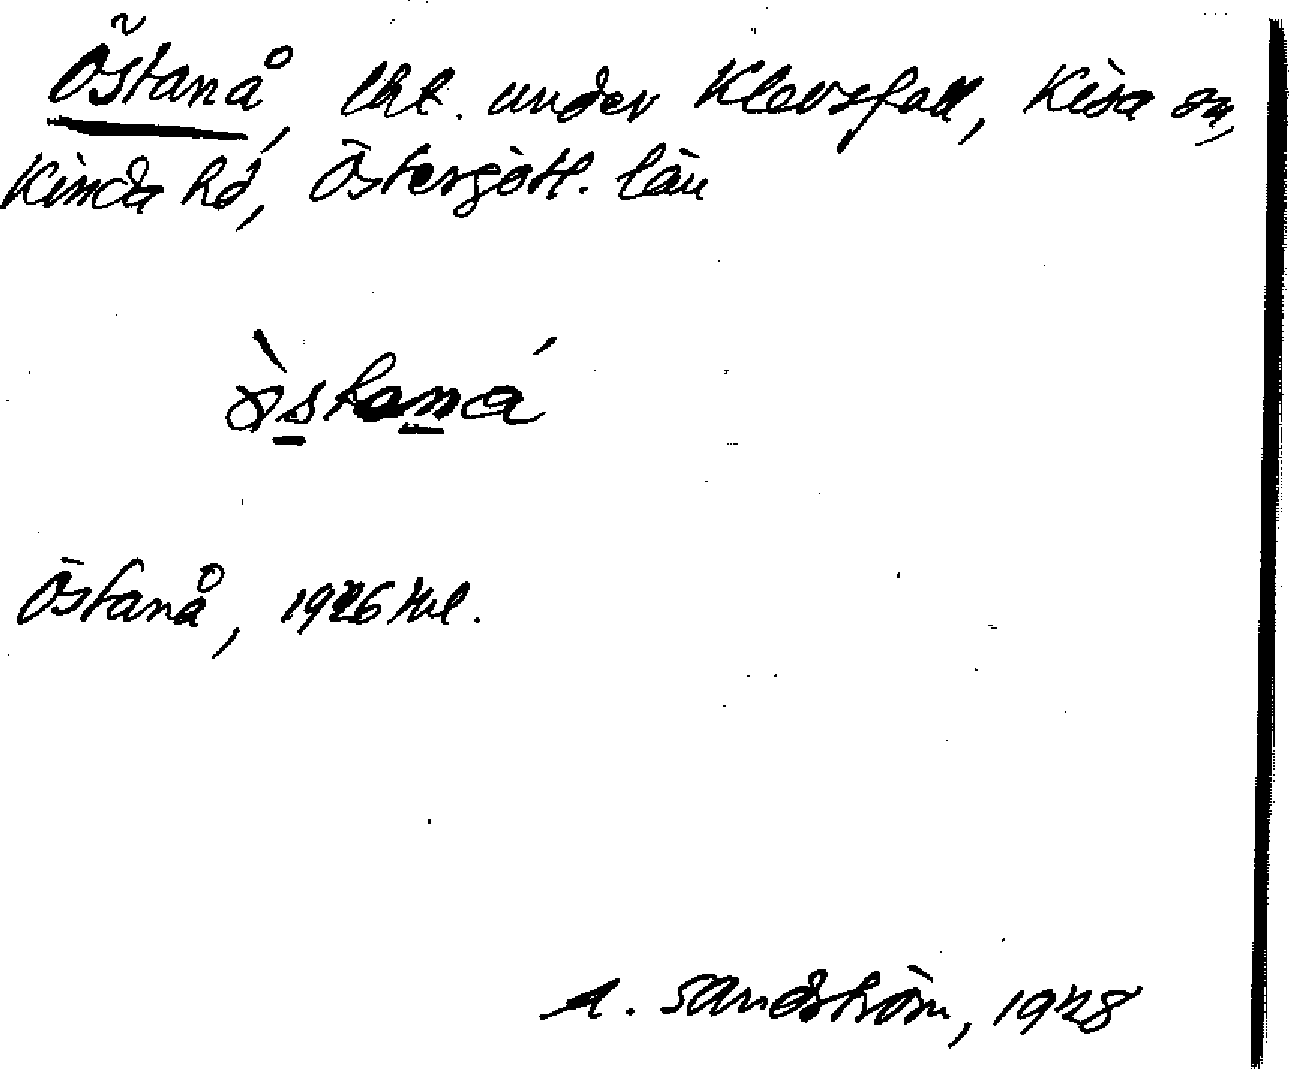 Östanå, lht. under Klevsfall, Kisa sn,
Kinda hd, Östergötl. län
östaná
Östanå, 1926 
A. Sandström, 1928